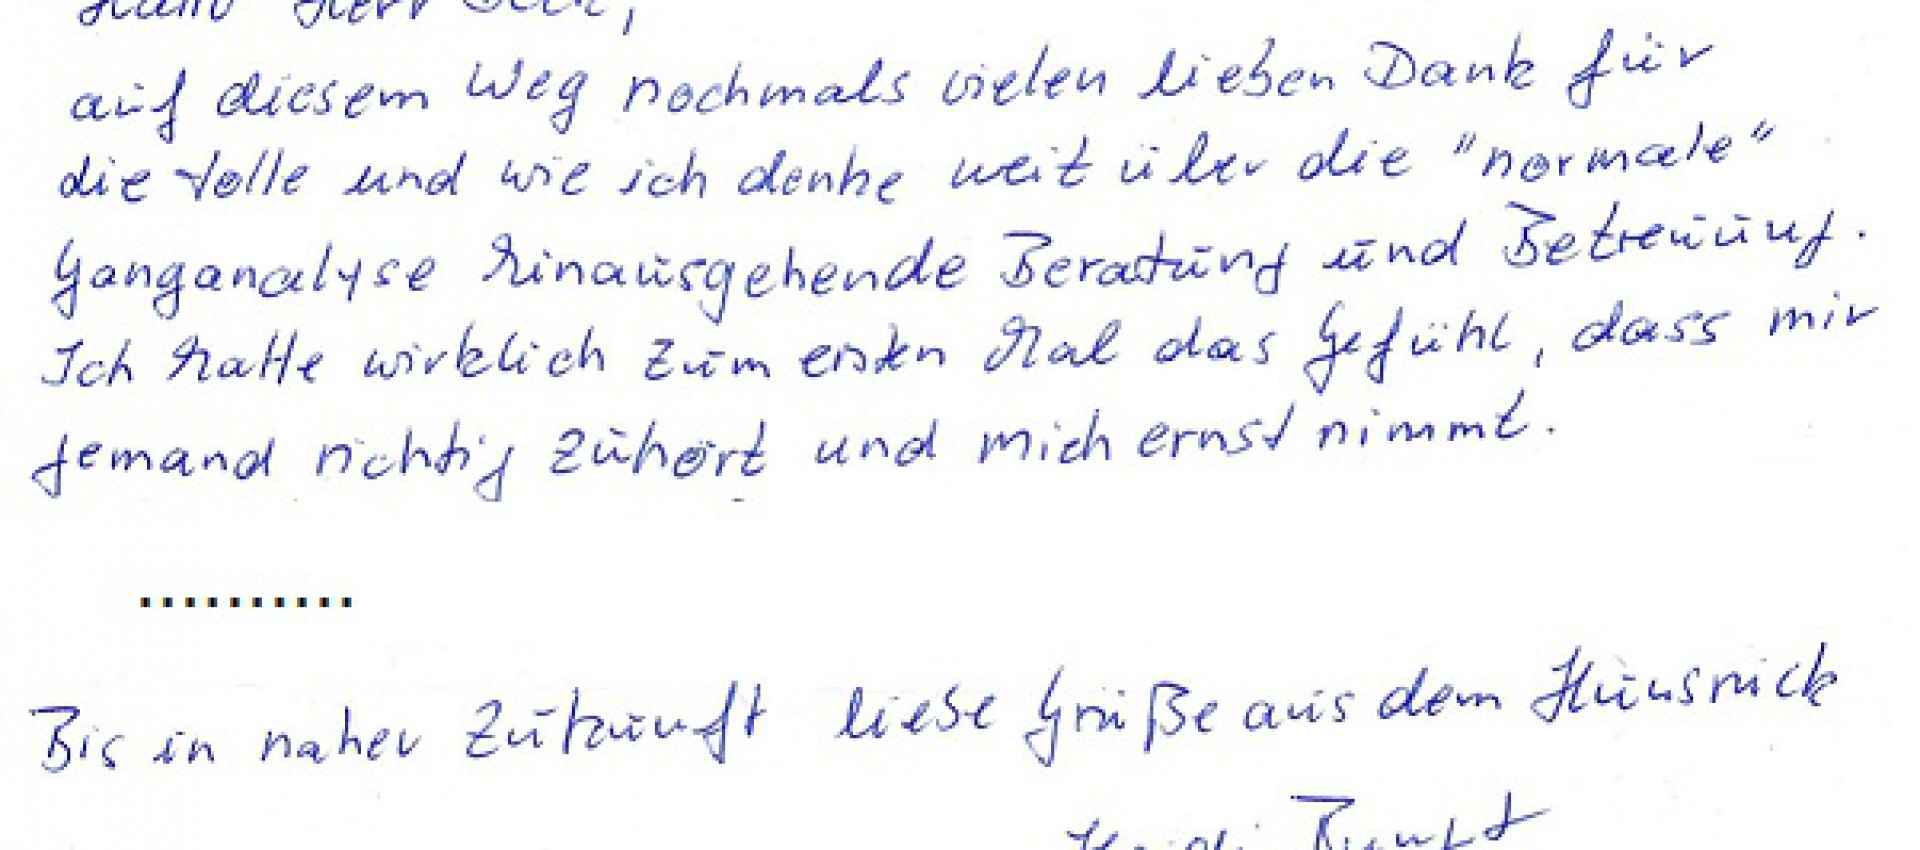 Hallo Herr
auf diesem Weg nochmals vielen lieben Dank für
die tolle und wie ich denke weit über die "normale"
Ganganalyse hinausgehende Beratung und Betreuung.
Ich hatte wirklich zum ersten Mal das Gefühl, dass mir
jemand richtig zuhört und mich ernst nimmt.
..........
Bis in naher Zukunft liebe Grüße aus dem Hunsrück